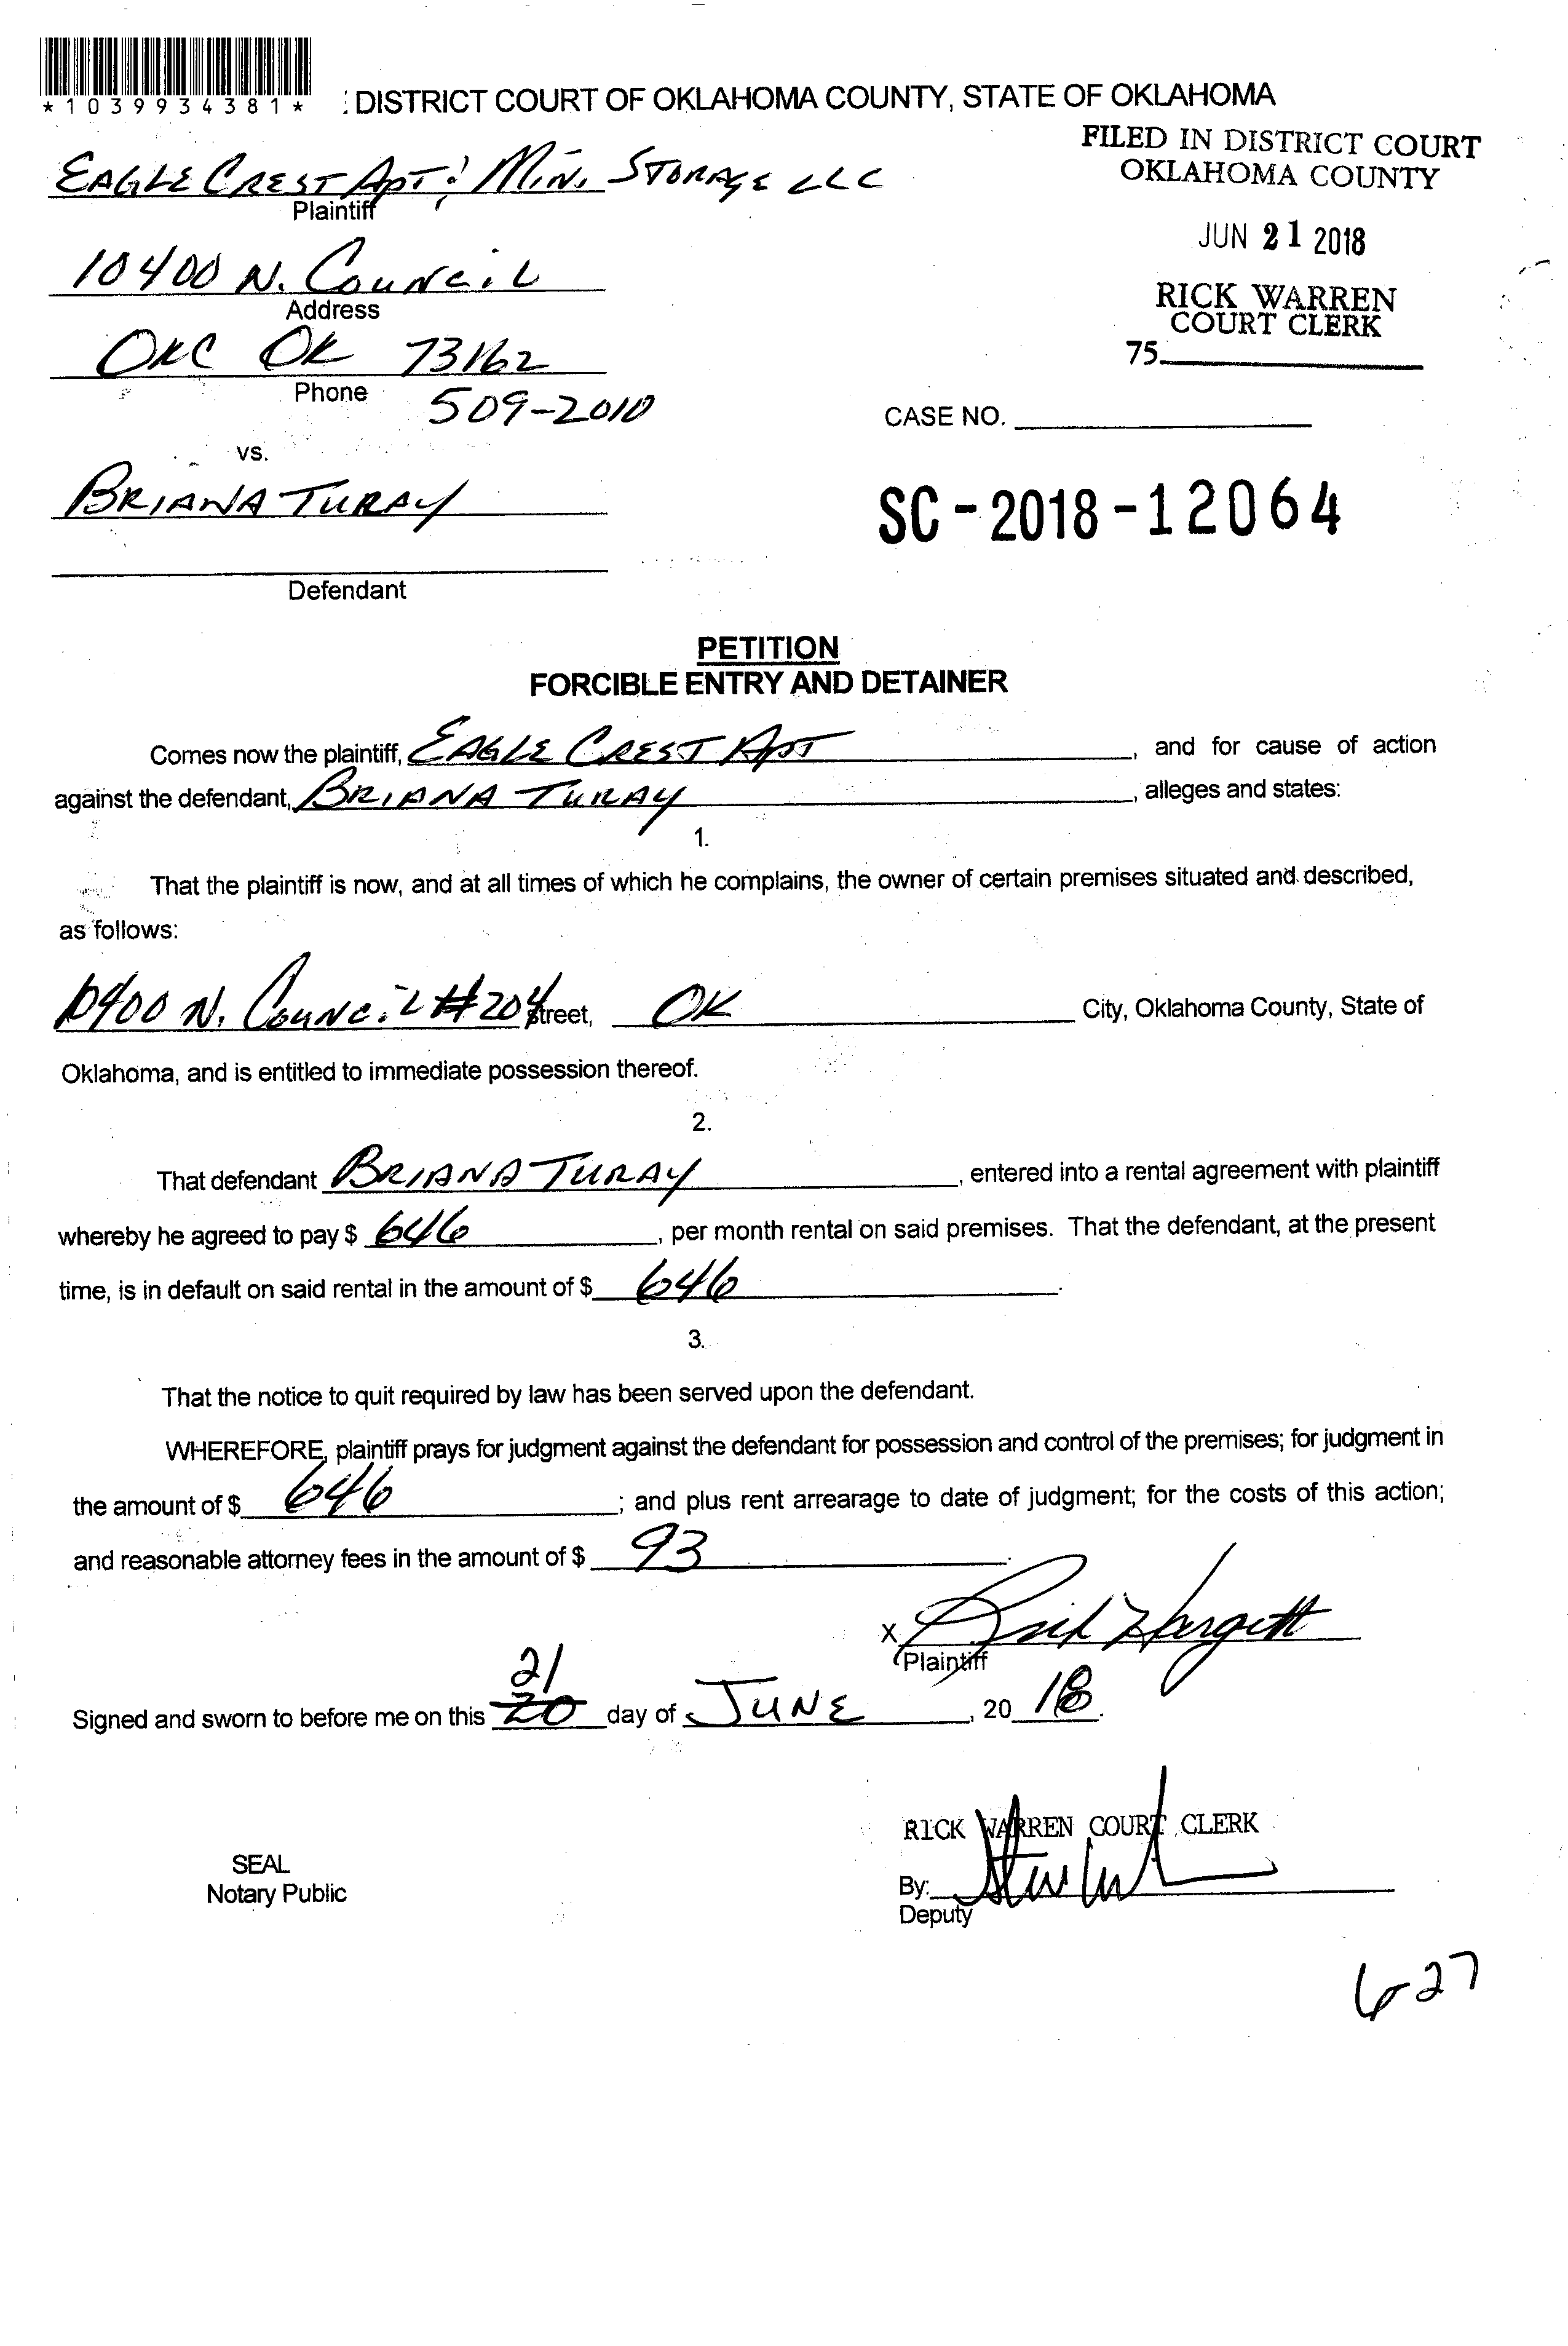 *1039934381*
: DISTRICT COURT OF OKLAHOMA COUNTY, STATE OF OKLAHOMA
FILED IN DISTRICT COURT
OKLAHOMA COUNTY
JUN 21 2018
RICK WARREN
COURT CLERK
75
EAGLE CREST APT & MINI STORAGE LLC
Plaintiff
10400 N. COUNCIL
Address
OKC OK 73162
Phone
509-2010
CASE NO.
vs.
BRIANA TURAY
SC-2018-12064
Defendant
PETITION
FORCIBLE ENTRY AND DETAINER
Comes now the plaintiff, EAGLE CREST APT, and for cause of action
against the defendant, BRIANA TURAY, alleges and states:
1.
That the plaintiff is now, and at all times of which he complains, the owner of certain premises situated and described,
as follows:
10400 N. COUNCIL #204 Street, OK City, Oklahoma County, State of
Oklahoma, and is entitled to immediate possession thereof.
2.
That defendant BRIANA TURAY, entered into a rental agreement with plaintiff
whereby he agreed to pay $ 646, per month rental on said premises. That the defendant, at the present
time, is in default on said rental in the amount of $ 646.
3.
That the notice to quit required by law has been served upon the defendant.
WHEREFORE, plaintiff prays for judgment against the defendant for possession and control of the premises; for judgment in
the amount of $ 646; and plus rent arrearage to date of judgment; for the costs of this action;
and reasonable attorney fees in the amount of $ 93.
X
Plaintiff
21
Signed and sworn to before me on this 20 day of JUNE, 20 18.
RICK WARREN COURT CLERK
SEAL
Notary Public
By:
Deputy
6-27